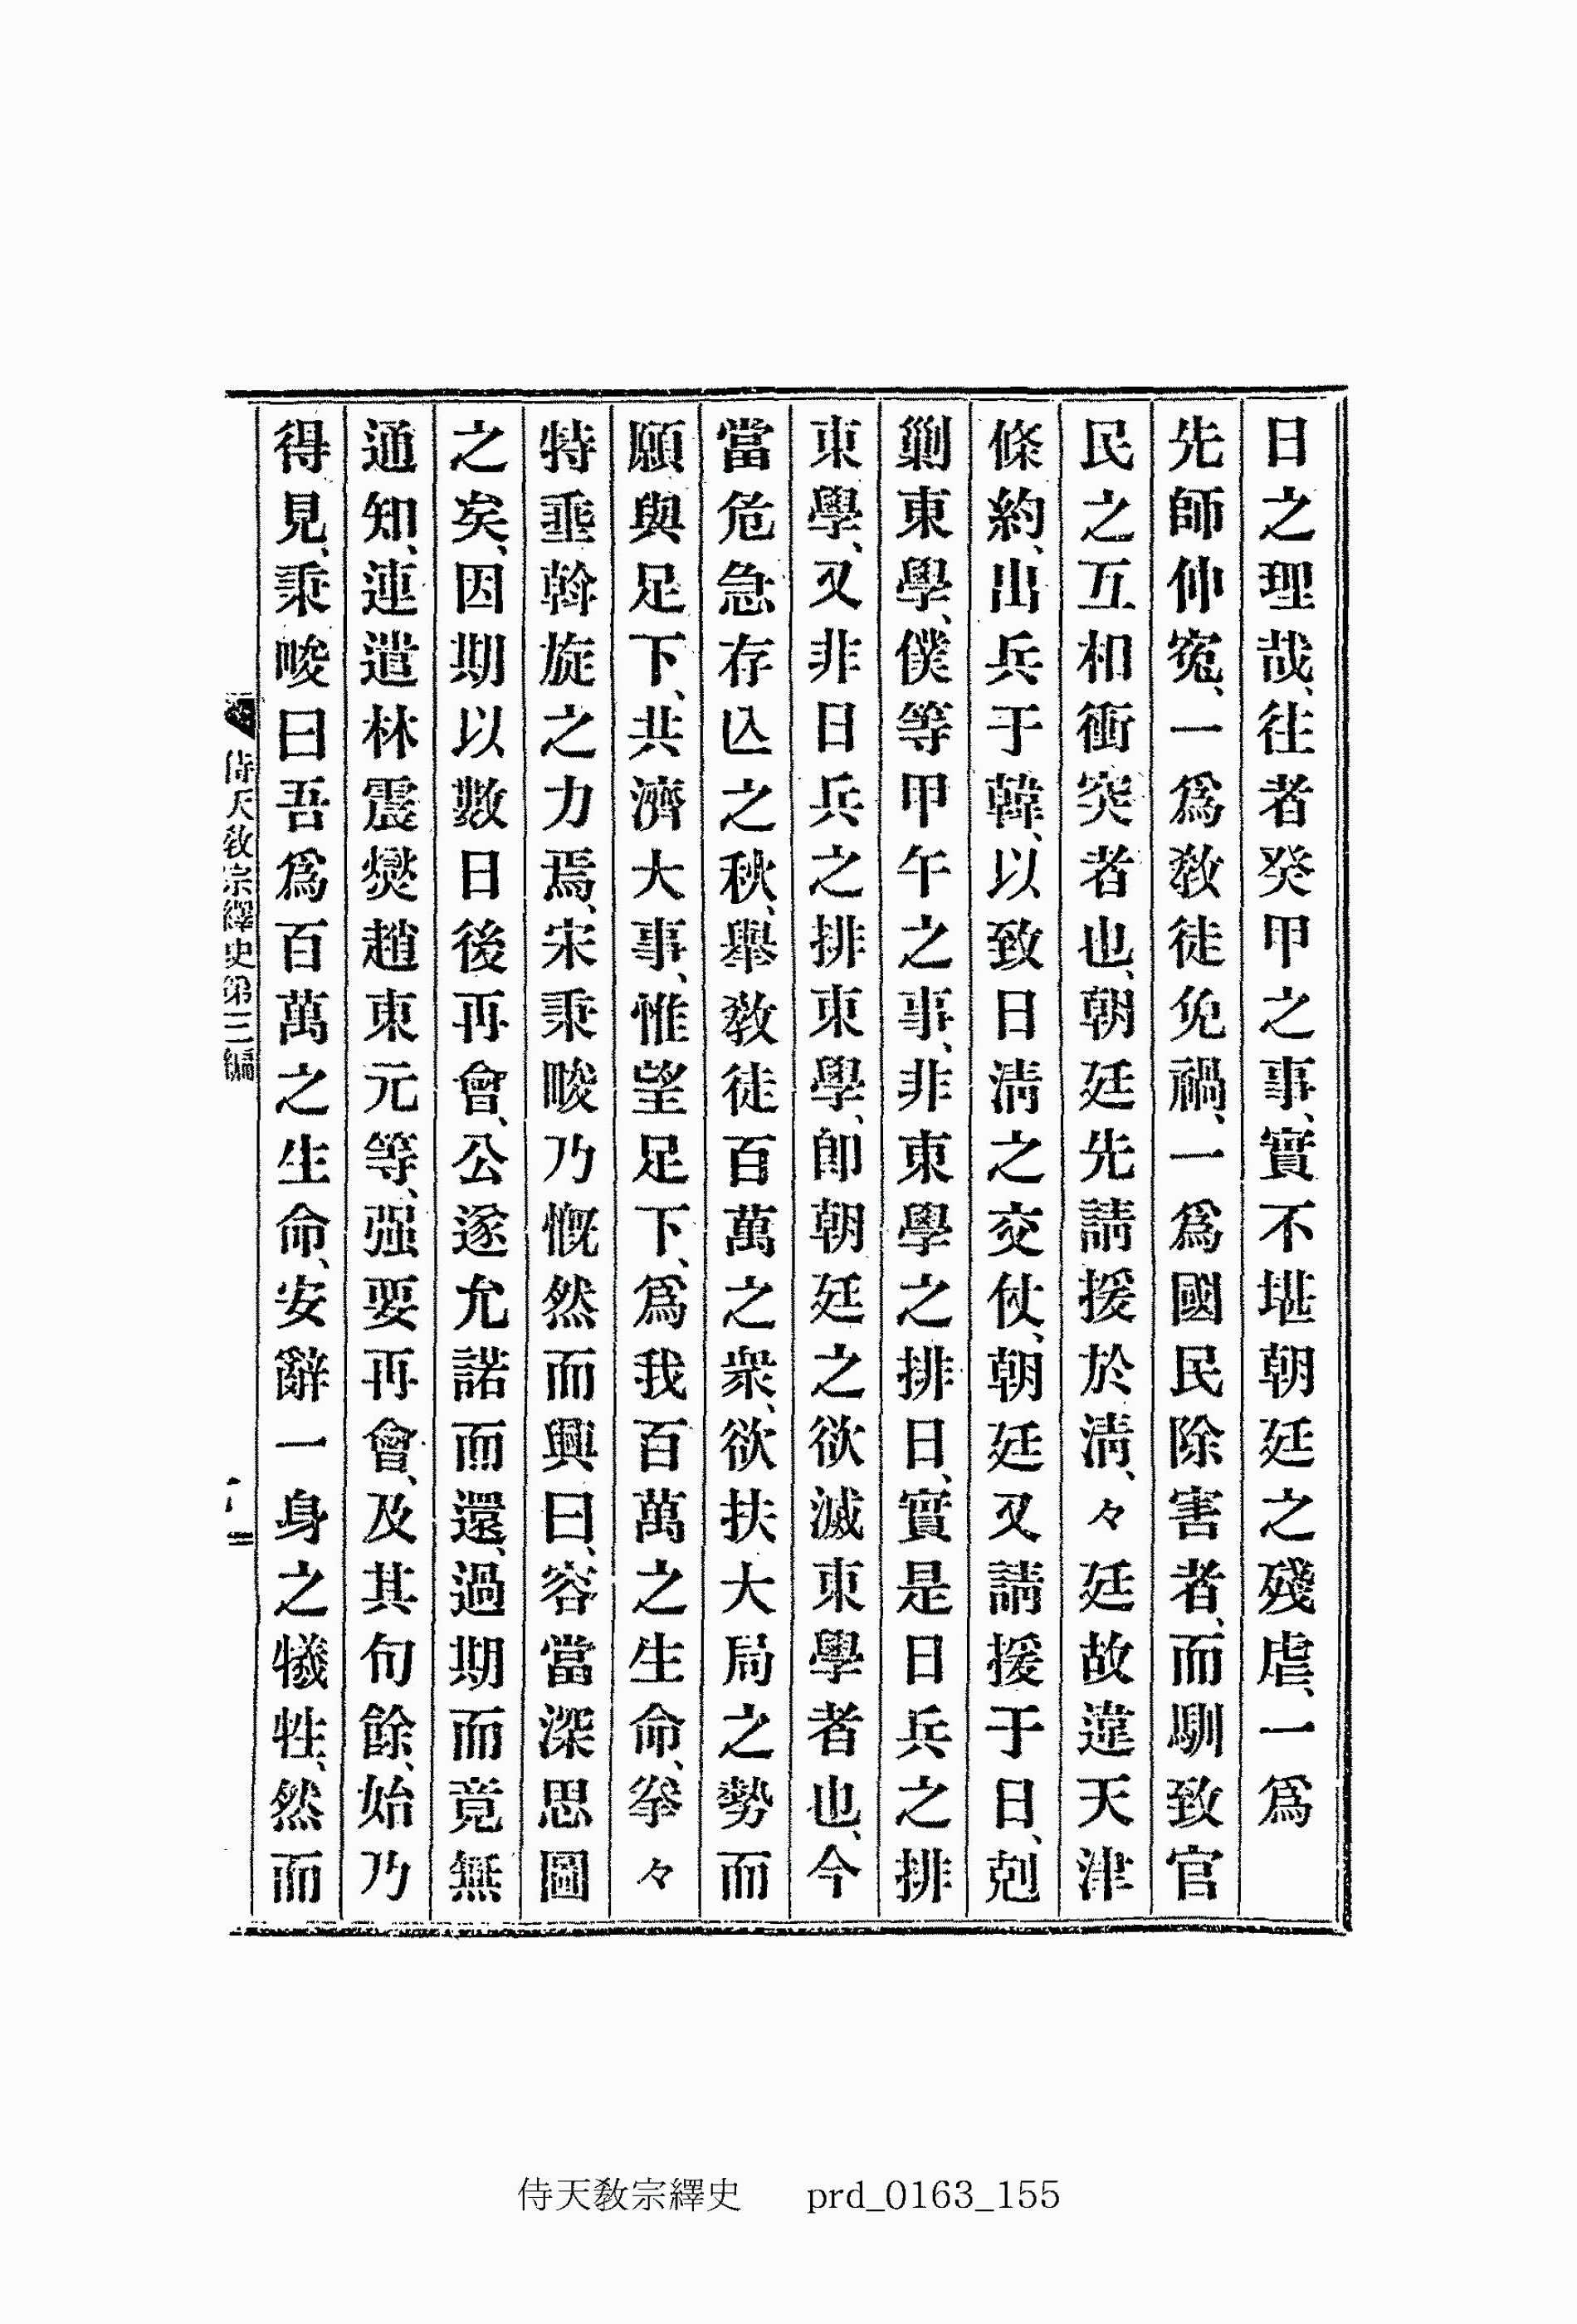 日之理哉、往者癸甲之事、實不堪朝廷之殘虐、一爲
先師伸寃、一爲敎徒免禍、一爲國民除害者、而馴致官
民之互相衝突者也、朝廷先請援於淸、々廷故違天津
條約、出兵于韓、以致日淸之交仗、朝廷又請援于日、剋
剿東學、僕等甲午之事、非東學之排日、實是日兵之排
東學、又非日兵之排東學、卽朝廷之欲滅東學者也、今
當危急存亾之秋、擧敎徒百萬之衆、欲扶大局之勢而
願與足下、共濟大事、惟望足下、爲我百萬之生命、拳々
特垂斡旋之力焉、宋秉畯乃慨然而興曰、容當深思圖
之矣、因期以數日後再會、公遂允諾而還、過期而竟無
通知、連遣林震燮趙東元等、强要再會、及其旬餘、始乃
得見、秉畯曰吾爲百萬之生命、安辭一身之犧牲、然而
侍天敎宗繹史第三編
侍天敎宗繹史 prd_0163_155